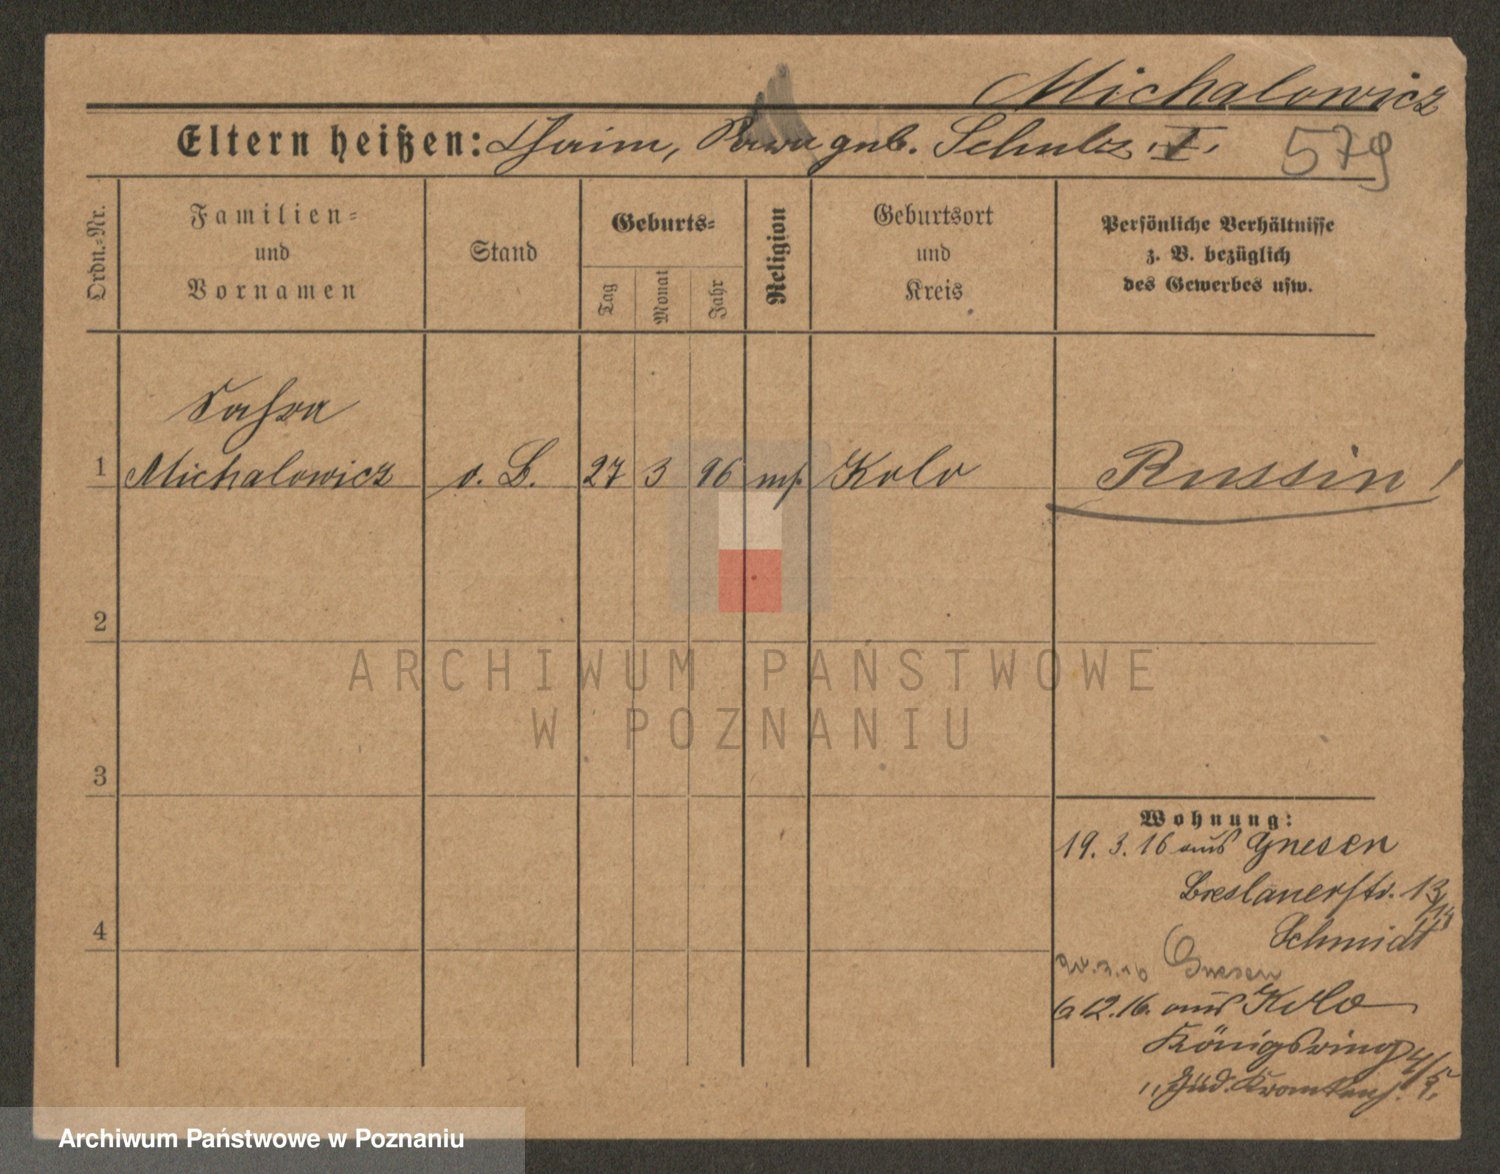 Michalowicz
Eltern heißen: Chaim, geb. Schulz. I.
579
Ordn.=Nr.
Familien=
und
Vornamen
Stand
Geburts=
Tag
Monat
Jahr
Religion
Geburtsort
und
Kreis
Persönliche Verhältnisse
z. B. bezüglich
des Gewerbes usw.
Sahra
1 Michalowicz o. B. 27 3 96 mos. Kolo Russin!
2
3
4
Wohnung:
19. 3. 16 aus Gnesen
Breslauerstr. 13/14
Schmidt
3. 16 Gnesen
6 12. 16. aus Kolo
Königsring 4/5.
"Jüd. Krankenh."
ARCHIWUM PAŃSTWOWE
W POZNANIU
Archiwum Państwowe w Poznaniu